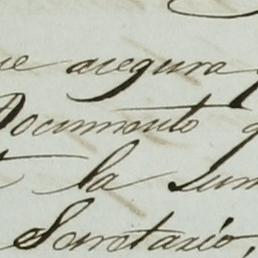 asegura
Documento
la
Secretario,